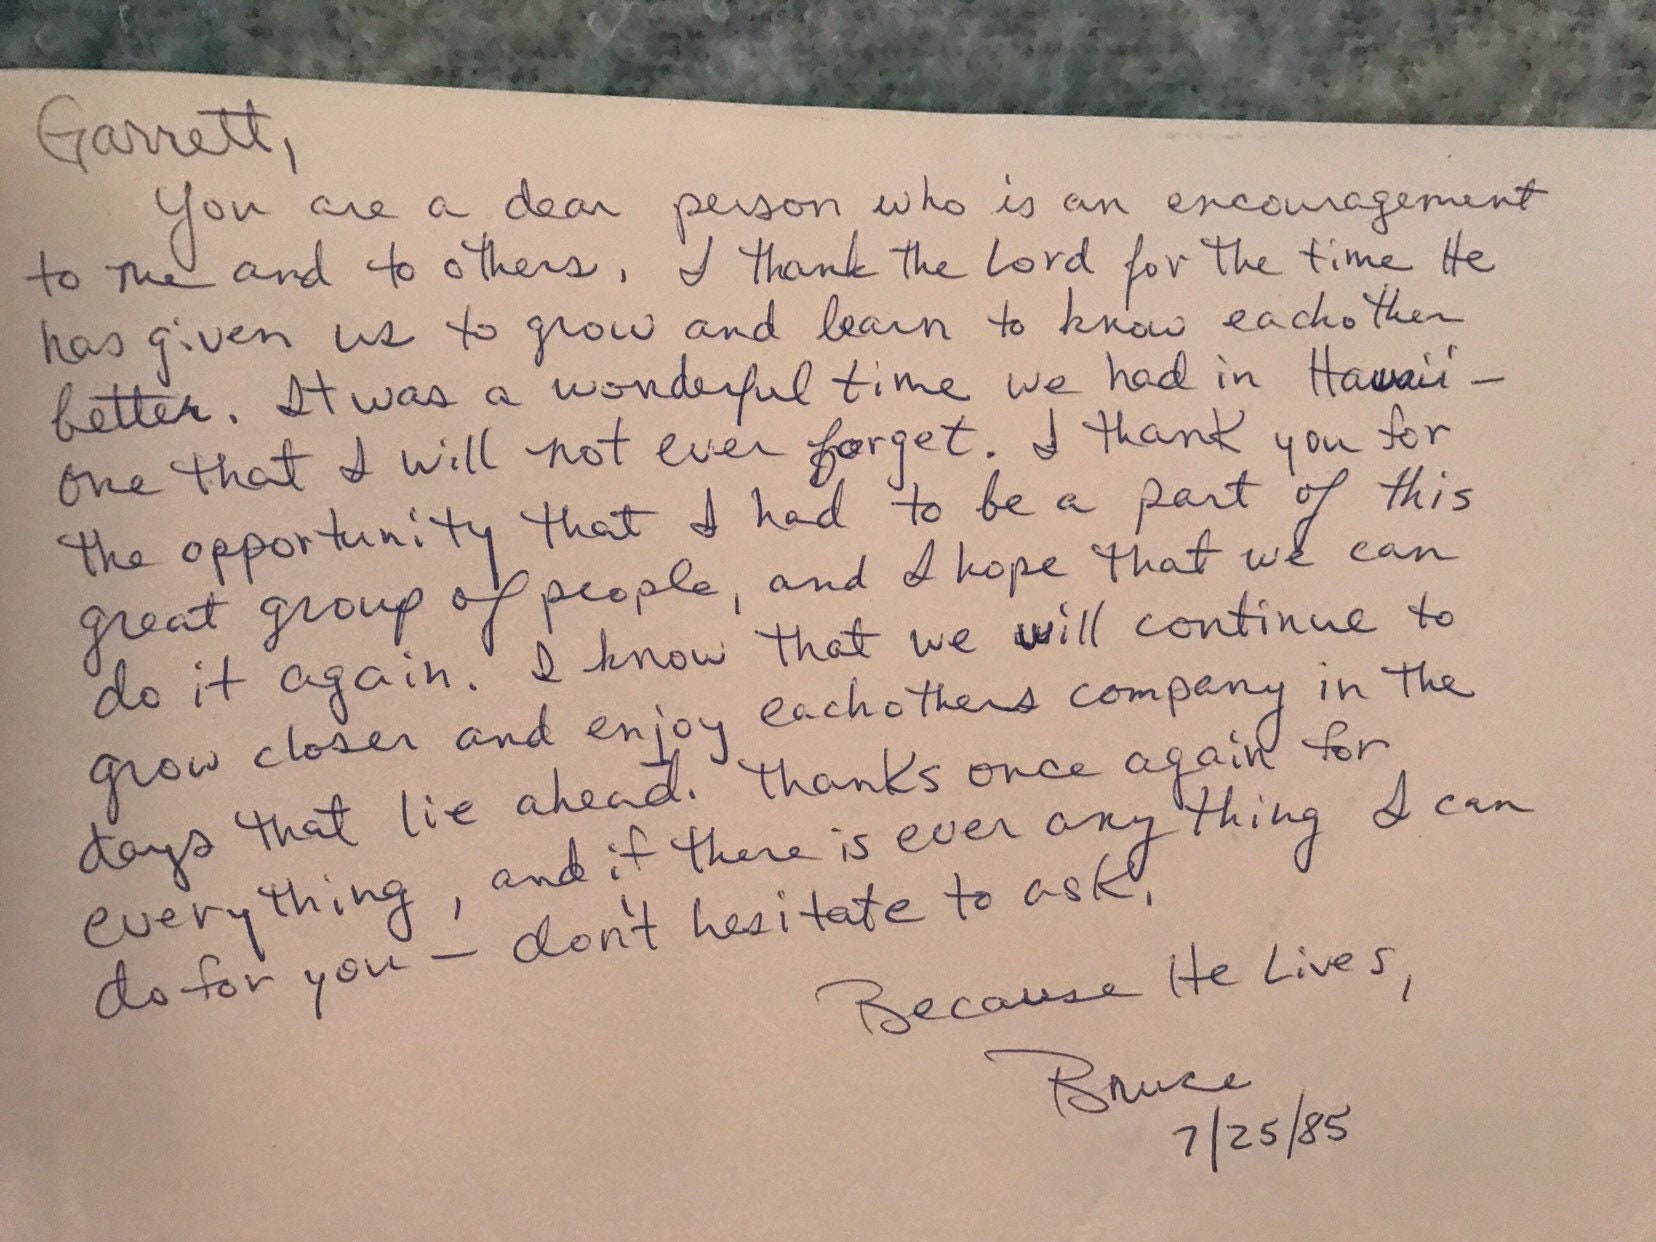 Garrett,
You are a dear person who is an encouragement
to me and to others. I thank the Lord for the time He
has given us to grow and learn to know eachother
better. It was a wonderful time we had in Hawaii -
one that I will not ever forget. I thank you for
the opportunity that I had to be a part of this
great group of people, and I hope that we can
do it again. I know that we will continue to
grow closer and enjoy eachothers company in the
days that lie ahead. Thanks once again for
everything, and if there is ever any thing I can
do for you - don't hesitate to ask.
Because He Lives,
Bruce
7/25/85